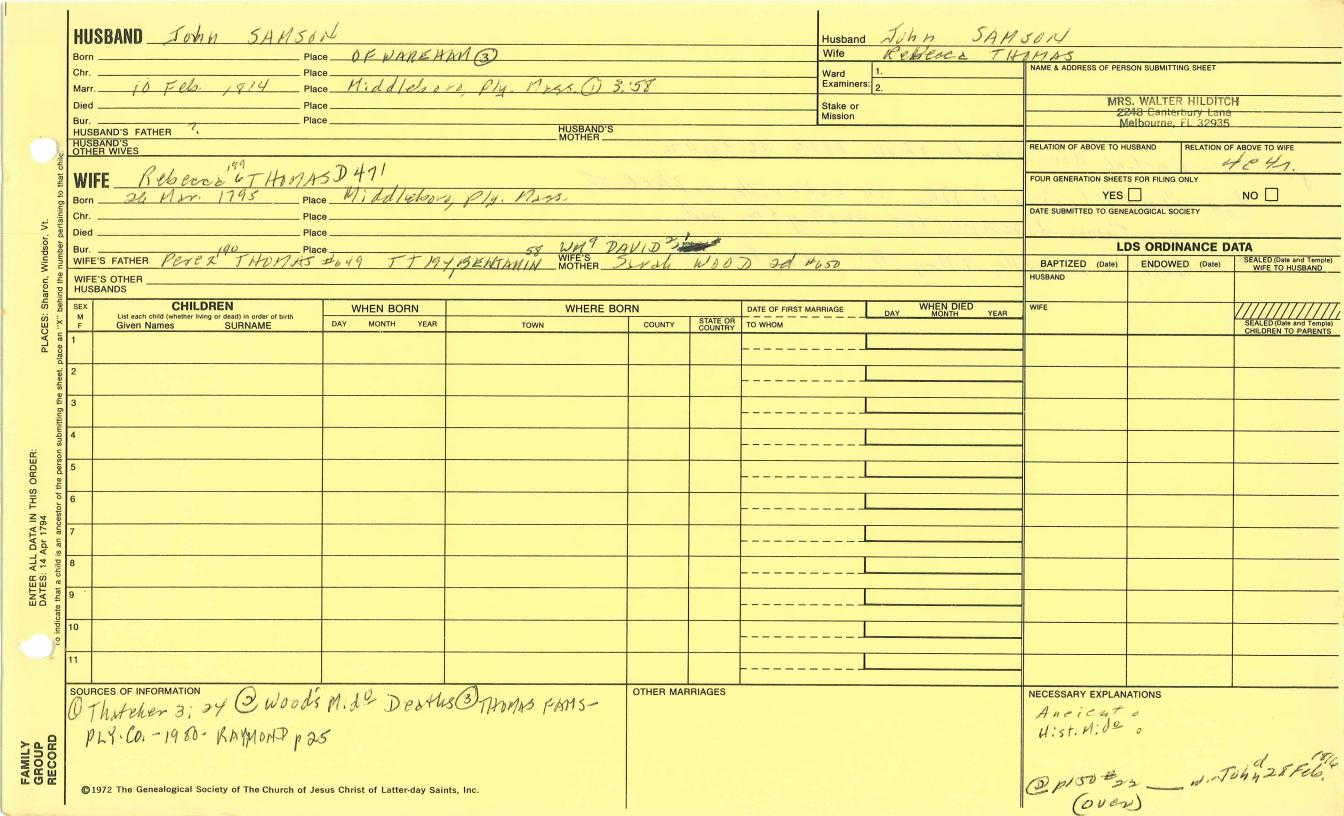 HUSBAND John SAMSON
Born Place OF WAREHAM ③
Chr. Place
Marr. 10 Feb. 1814 Place Middleboro, Ply. Mass. ① 3:58
Died Place
Bur. Place
HUSBAND'S FATHER ? HUSBAND'S MOTHER
HUSBAND'S OTHER WIVES
WIFE Rebecca THOMAS D471
189
6
Born 26 Mar. 1795 Place Middleboro, Ply. Mass.
Chr. Place
Died Place
Bur. Place
190 58 Wm9 DAVID2
WIFE'S FATHER Perez THOMAS #649 BENJAMIN WIFE'S MOTHER Sarah WOOD 2d #650
WIFE'S OTHER HUSBANDS
Husband John SAMSON
Wife Rebecca THOMAS
Ward Examiners: 1.
2.
Stake or Mission
NAME & ADDRESS OF PERSON SUBMITTING SHEET
MRS. WALTER HILDITCH
2248 Canterbury Lane
Melbourne, FL 32935
RELATION OF ABOVE TO HUSBAND RELATION OF ABOVE TO WIFE
4c4r.
FOUR GENERATION SHEETS FOR FILING ONLY
YES NO
DATE SUBMITTED TO GENEALOGICAL SOCIETY
LDS ORDINANCE DATA
BAPTIZED (Date) ENDOWED (Date) SEALED (Date and Temple) WIFE TO HUSBAND
HUSBAND
WIFE
SEALED (Date and Temple) CHILDREN TO PARENTS
SEX M F
CHILDREN
List each child (whether living or dead) in order of birth
Given Names SURNAME
WHEN BORN
DAY MONTH YEAR
WHERE BORN
TOWN COUNTY STATE OR COUNTRY
DATE OF FIRST MARRIAGE
TO WHOM
WHEN DIED
DAY MONTH YEAR
1
2
3
4
5
6
7
8
9
10
11
SOURCES OF INFORMATION
① Thatcher 3:24 ② Wood's Mido Deaths ③ THOMAS FAMS-
PLY. CO. - 1980 - RAYMOND p 25
©1972 The Genealogical Society of The Church of Jesus Christ of Latter-day Saints, Inc.
OTHER MARRIAGES
NECESSARY EXPLANATIONS
Ancient
Hist. Mido
② p150 #22 — w. John d 28 Feb.
(over)
ENTER ALL DATA IN THIS ORDER:
DATES: 14 Apr 1794 PLACES: Sharon, Windsor, Vt.
To indicate that a child is an ancestor of the person submitting the sheet, place an "X" behind the number pertaining to that child.
FAMILY GROUP RECORD